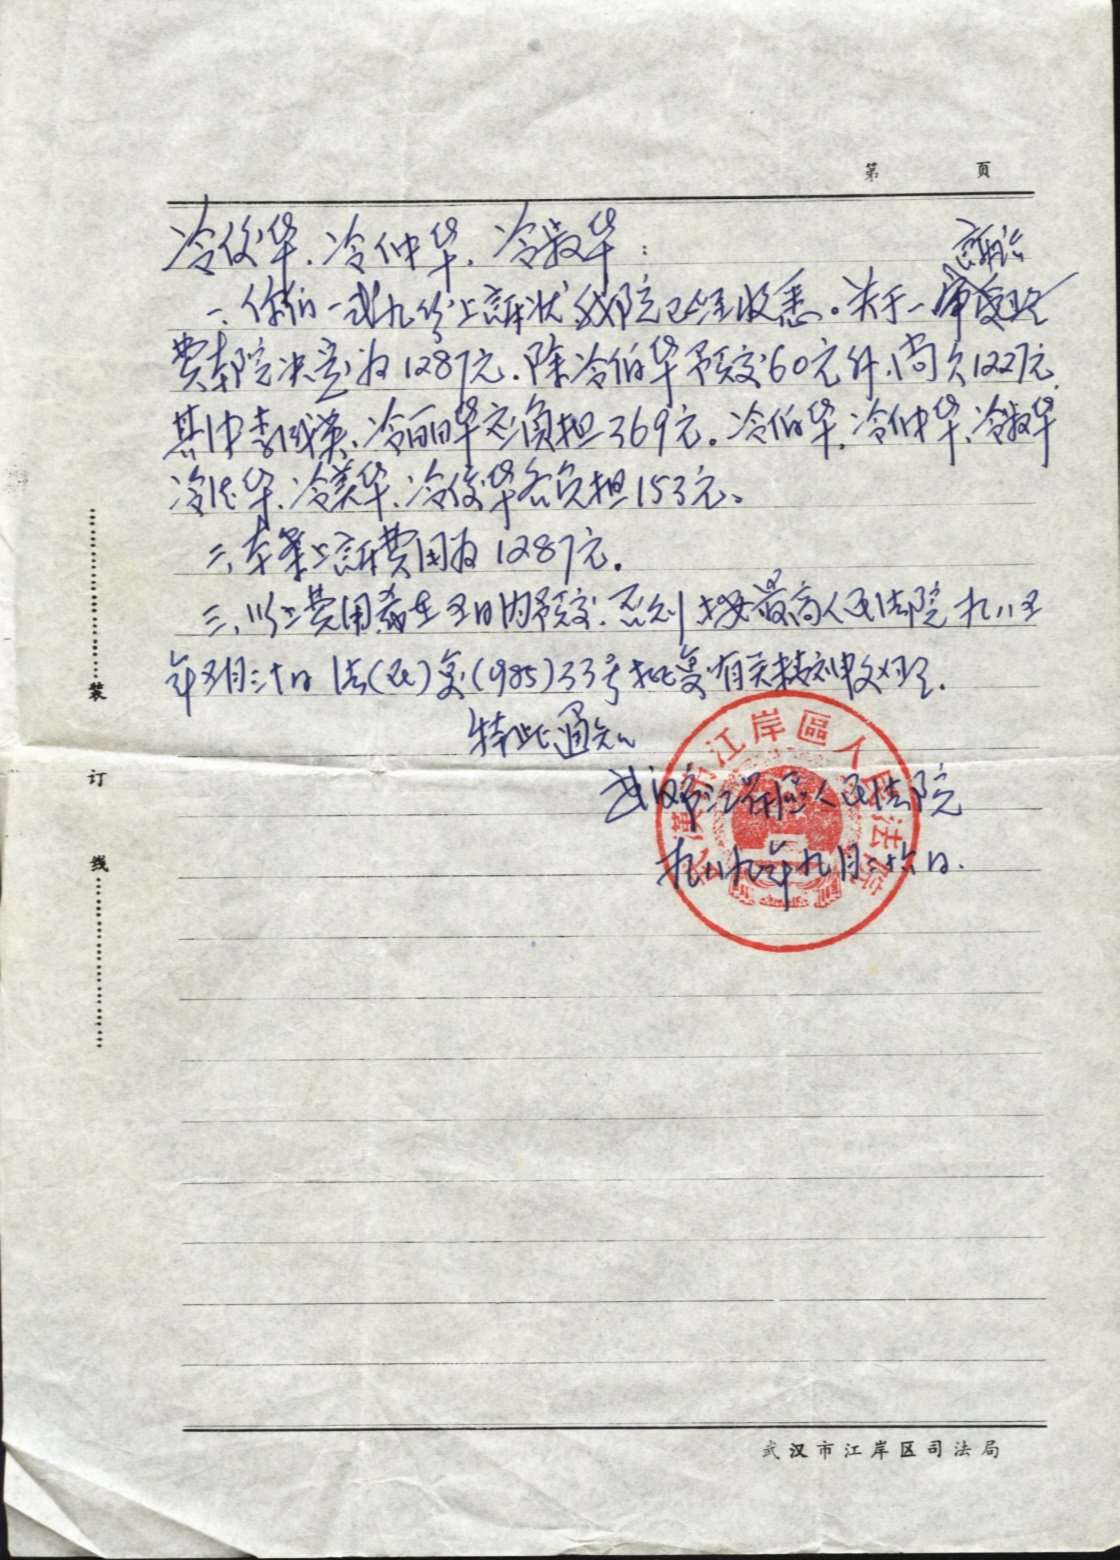 第 页
冷俊华、冷仲华、冷淑华:
诉讼
一、你们一式九份上诉状我院已经收悉。关于一审
费本院决定为1287元.除冷伯华予交60元外,尚欠1227元.
其中李 英、冷丽华应负担369元。冷伯华、冷仲华、冷淑华
冷 华、冷美华、冷俊华各负担153元。
二、本案上诉费用为1287元.
三、以上费用希在五日内予交.否则按最高人民法院九八五
年 月三十日法(民)复(985)33号批复有关精神处理.
特此通知
武汉市江岸区人民法院
武漢市江岸區人民法院
九八九年九月二十六日.
装
订
线
武汉市江岸区司法局